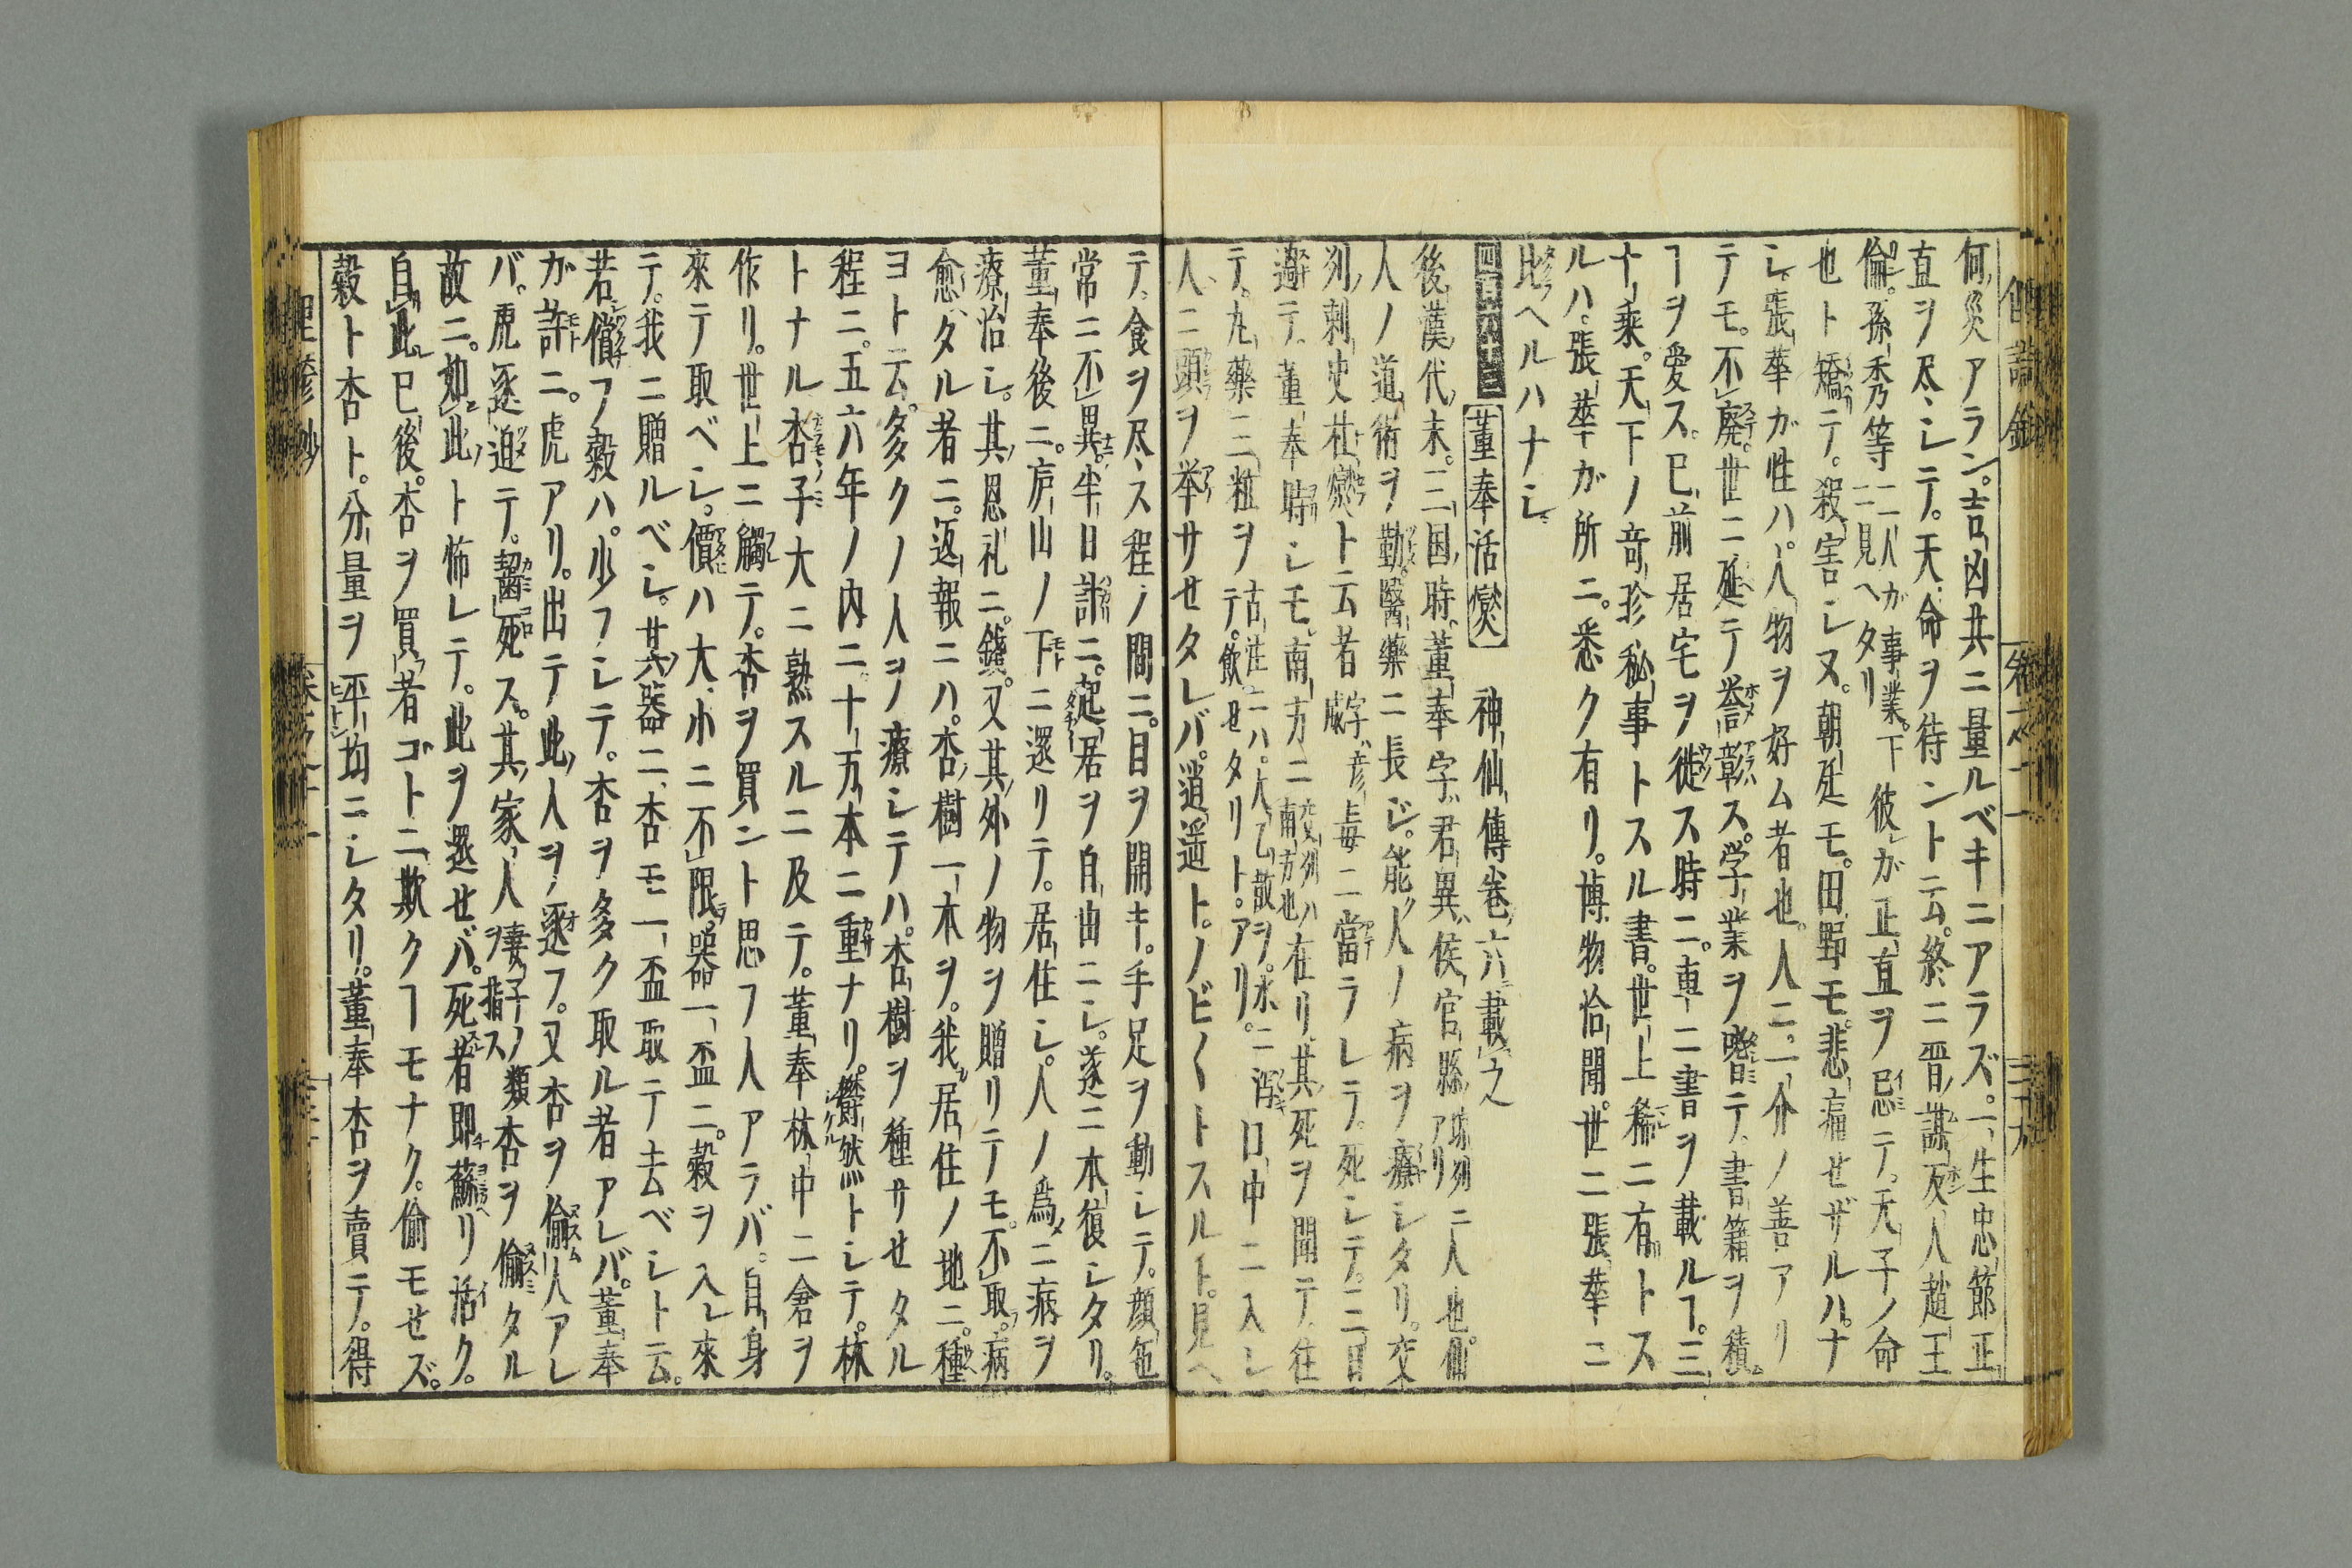 何災アラン。吉凶共ニ量ルベキニアラズ。一生忠節正
直ヲ尽シテ。天命ヲ待ントス云。終ニ晋謀反人趙王
倫。孫秀等二人ガ事業。下ニ見ヘタリ彼ガ正直ヲ忌テ。天子ノ命
也ト矯テ。殺害シヌ。朝廷モ。田野モ。悲痛せザルハナ
シ。張華ガ性ハ。人物ヲ好ム者也。人ニ。一介ノ善アリ
テモ。不廃。世ニ延テ誉彰ス。学業ヲ嗜テ。書籍ヲ積。
ヿヲ愛ス。已前居宅ヲ徙ス時ニ。車ニ書ヲ載ルヿ。三
十乘。天下ノ奇珍秘事トスル書。世上稀ニ有トス
ルハ。張華ガ所ニ。悉ク有リ。博物恰聞。世ニ張華ニ
比ヘルハナシ。
四百八十三 董奉活燮 神仙傳巻六載之
後漢代末。三国時。董奉字君異。侯官縣ニ人也。仙
人ノ道術ヲ勤。醫藥ニ長ジ。能人ノ病ヲ療シタリ。交
刕刺史杜燮ト云者毒ニ當ラレテ。死シテ。三日
テ。董奉時シモ。南方ニ交刕ハ南方也在リ。其死ヲ聞テ。往
テ。丸藥三粒ヲ古注ニハ。大乙散ヲ。水ニテ。飲せタリト。アリ。口中ニ入レ
人ニ頭ヲ挙サせタレバ。逍遥ト。ノビ〱トスルト。見ヘ
テ。食ヲ尽ス程ノ間ニ。目ヲ開キ。手足ヲ動シテ。顔色
常ニ不異。半日計ニ。起居ヲ自由ニシ。遂ニ本復シタリ。
董奉後ニ。庐山ノ下ニ還リテ。居住シ。人ノ為ニ病ヲ
療治シ。其恩礼ニ。錢。又其外ノ物ヲ贈リテモ。不取。病
愈タル者ニ。返報ニハ。杏樹一本ヲ。我居住ノ地ニ。種
ヨト云。多クノ人ヲ療シテハ。杏樹ヲ種サせタル
程ニ。五六年ノ内ニ。十万本ニ重ナリ。欝然トシテ。林
トナル杏子大ニ熟スルニ及テ。董奉林中ニ倉ヲ
作リ。世上ニ觸テ。杏ヲ買ント思フ人アラバ。自身
來テ取ベシ。價ハ大小ニ不限。器一盃ニ。穀ヲ入レ來
テ。我ニ贈ルベシ。其器ニ杏モ一盃取テ去ベシト云。
若償フ穀ハ。少フシテ。杏ヲ多ク取ル者アレバ。董奉
ガ許ニ。虎アリ。出テ此人ヲ逐フ。又杏ヲ偷人アレ
バ。虎逐迫テ。齧死ス。其家人妻子ノ類ヲ指ス杏ヲ偷タル
故ニ。如此ト怖レテ。此ヲ還せバ。死者即蘇リ活ク。
自此已後。杏ヲ買者ゴトニ欺クヿモナク。偷モせズ。
穀ト杏ト。分量ヲ平均ニシタリ。董奉杏ヲ賣テ。得